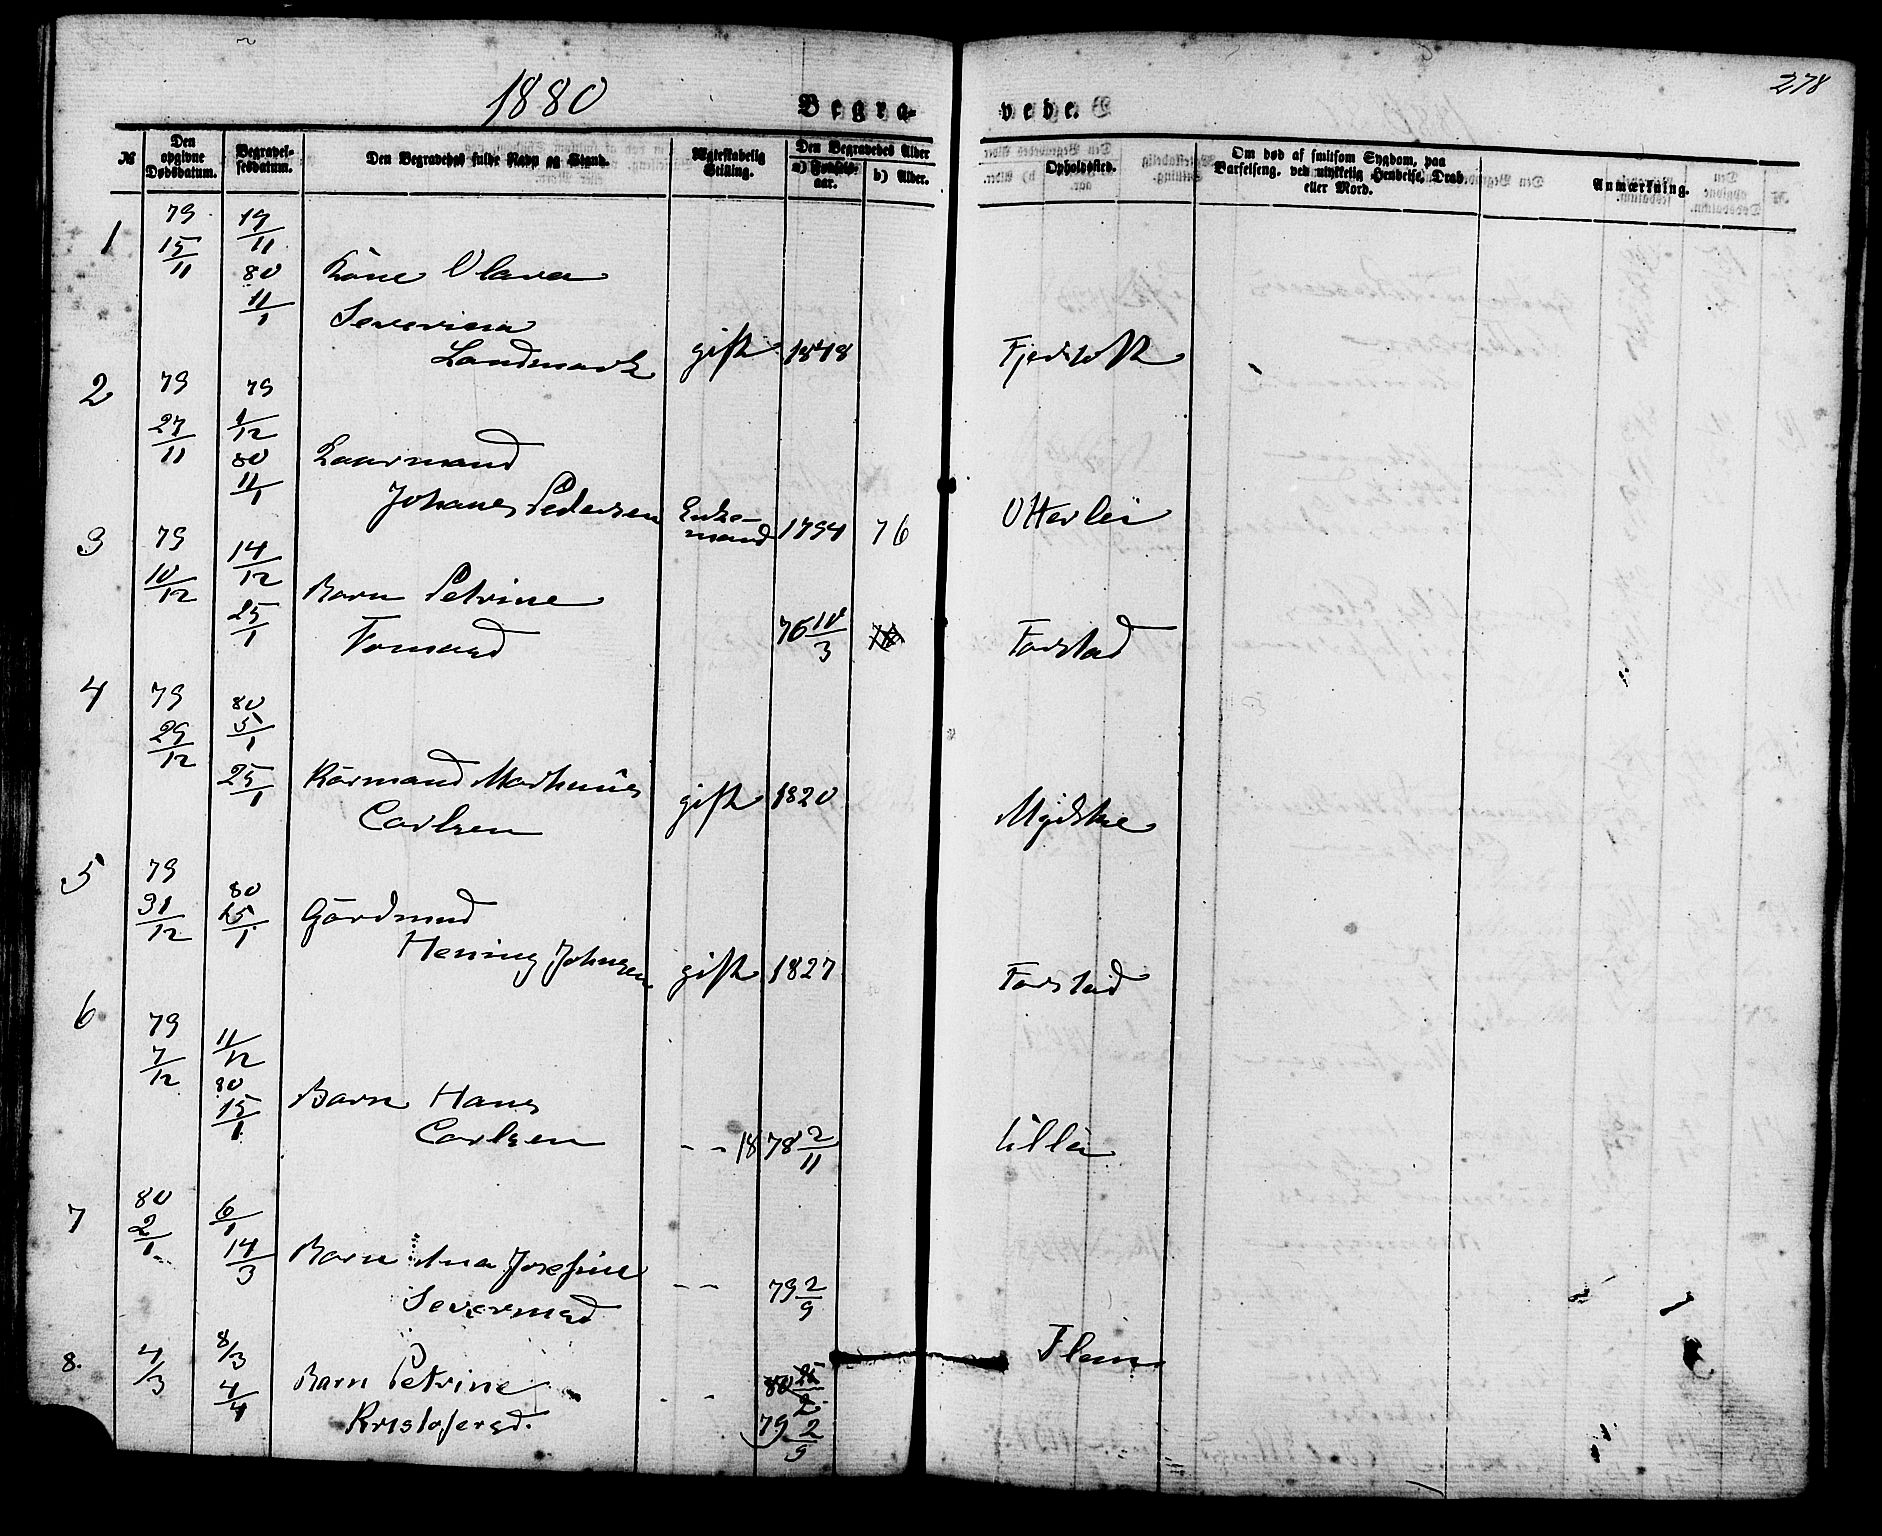 278
1880
Begra-
vede.
№
Den opgivne Dødsdatum.
Begravel-sesdatum.
Den Begravedes fulde Navn og Stand.
Ægteskabelig Stilling.
Den Begravedes Alder
a) Fødsels-aar.
b) Alder.
Opholdssted.
Om død af smitsom Sygdom, paa Barselseng, ved ulykkelig Hendelse, Drab eller Mord.
Anmærkning.
1
79 15/11
19/11
80 11/1
Kone Olava
Severina
Landmark gift 1848 Fjertoft
2
79 27/11
79 1/12
80 11/1
Kaarmand
Johanes Pedersen Enke-
mand 1794 76 Otterlei
3
79 10/12
14/12
25/1
Barn Petrine
Tomasd 76 10/3 Farstad
4
79 29/12
80 5/1
25/1
Kårmand Mathius
Carlsen gift 1820 Mydske
5
79 31/12
80 25/1
Gårdmand
Hening Johnsen gift 1827 Farstad
6
79 7/12
11/12
80 15/1
Barn Hans
Carlsen - - 1878 2/11 Ulla
7
80 2/1
6/1
14/3
Barn Ana Josefine
Severinsd - - 79 2/9
8.
4/3
8/3
4/4
Barn Petrine
Kristofersd. - - 79 2/9 Flem